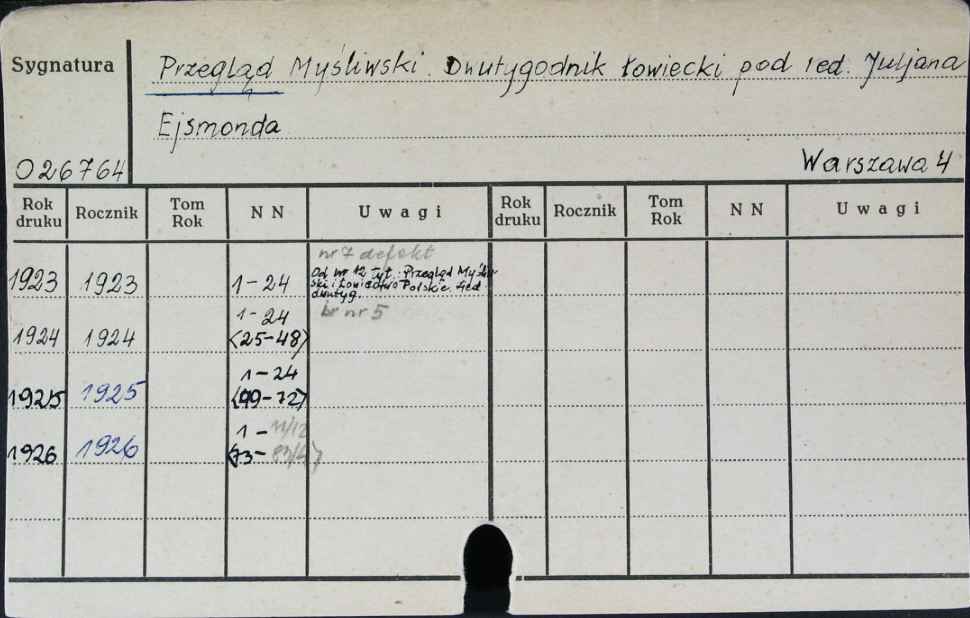 Sygnatura
Przegląd Myśliwski. Dwutygodnik łowiecki pod red. Juljana
Ejsmonda
026764
Warszawa 4
Rok druku Rocznik Tom Rok N N Uwagi Rok druku Rocznik Tom Rok N N Uwagi
nr 7 defekt
1923 1923 1-24 Od nr 12 tyt.: Przegląd Myśliw-
ski i Łowiectwo Polskie.
dwutyg.
1-24 br nr 5
1924 1924 (25-48)
1-24
1925 1925 (49-72)
1- 11/12
1926 1926 (73-